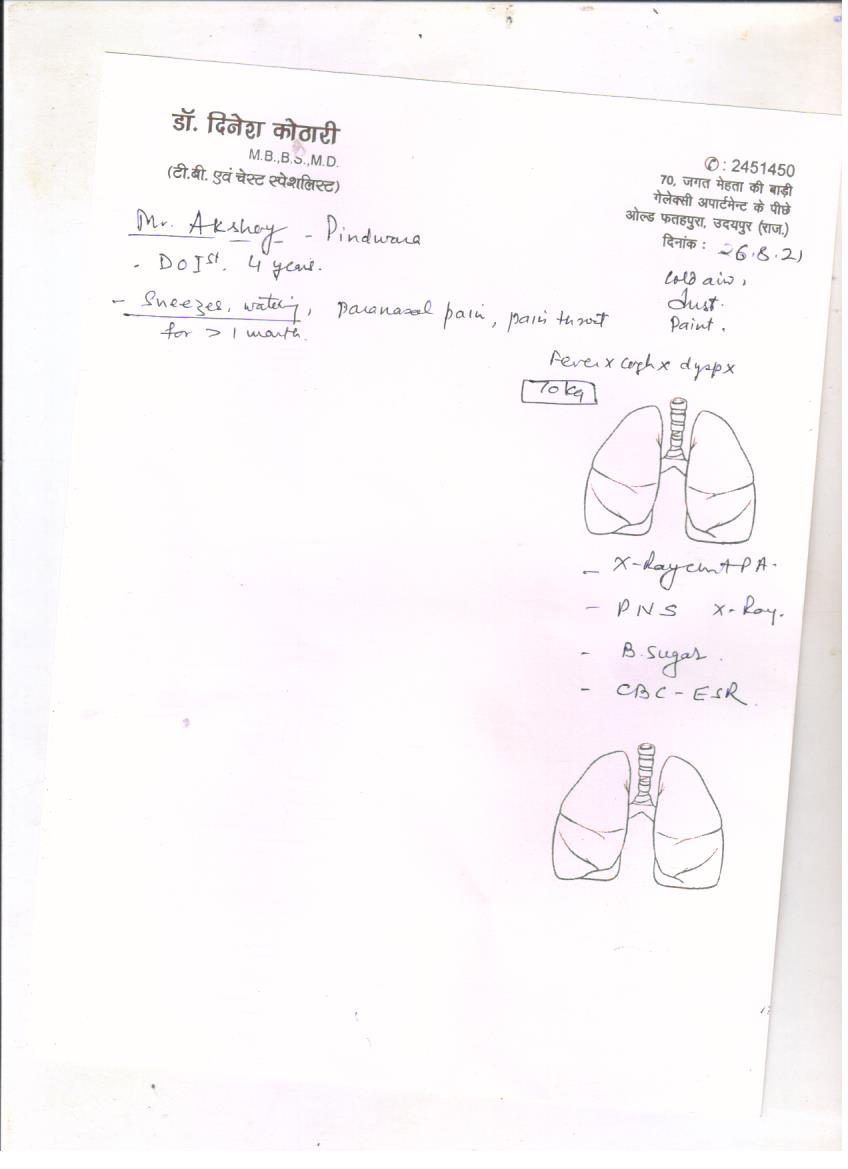 डॉ. दिनेश कोठारी
M.B.,B.S.,M.D.
(टी.बी. एवं चेस्ट स्पेशलिस्ट)
✆: 2451450
70, जगत मेहता की बाड़ी
गेलेक्सी अपार्टमेन्ट के पीछे
ओल्ड फतहपुरा, उदयपुर (राज.)
दिनांक : 26.8.21
Mr. Akshay - Pindwara
- DOIst. 4 years.
- Sneezes, watering, paranasal pain, pain throat
for > 1 month.
Cold air,
dust.
Paint.
Fever x cough x dysp x
70 kg
- X-Ray chest PA.
- PNS X-Ray.
- B. Sugar.
- CBC - ESR.